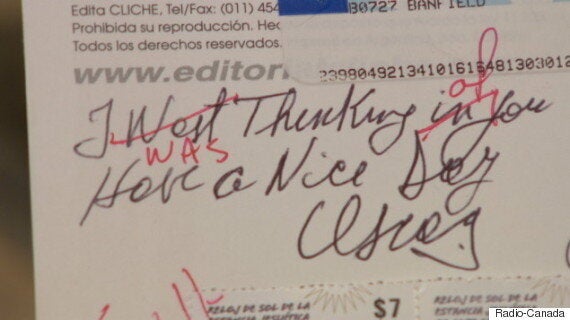 Edita CLICHE, Tel/Fax: (011) 454
B0727 BANFIELD
Prohibida su reproducción. Hec
Todos los derechos reservados.
www.editori
23980492134101615481303012
of
I West Thinking in You
WAS
Have a Nice Day
Oscar
RELOJ DE SOL DE LA
ESTANCIA JESUÍTICA
$7
RELOJ DE SOL DE LA
ESTANCIA JESUÍTICA
Radio-Canada